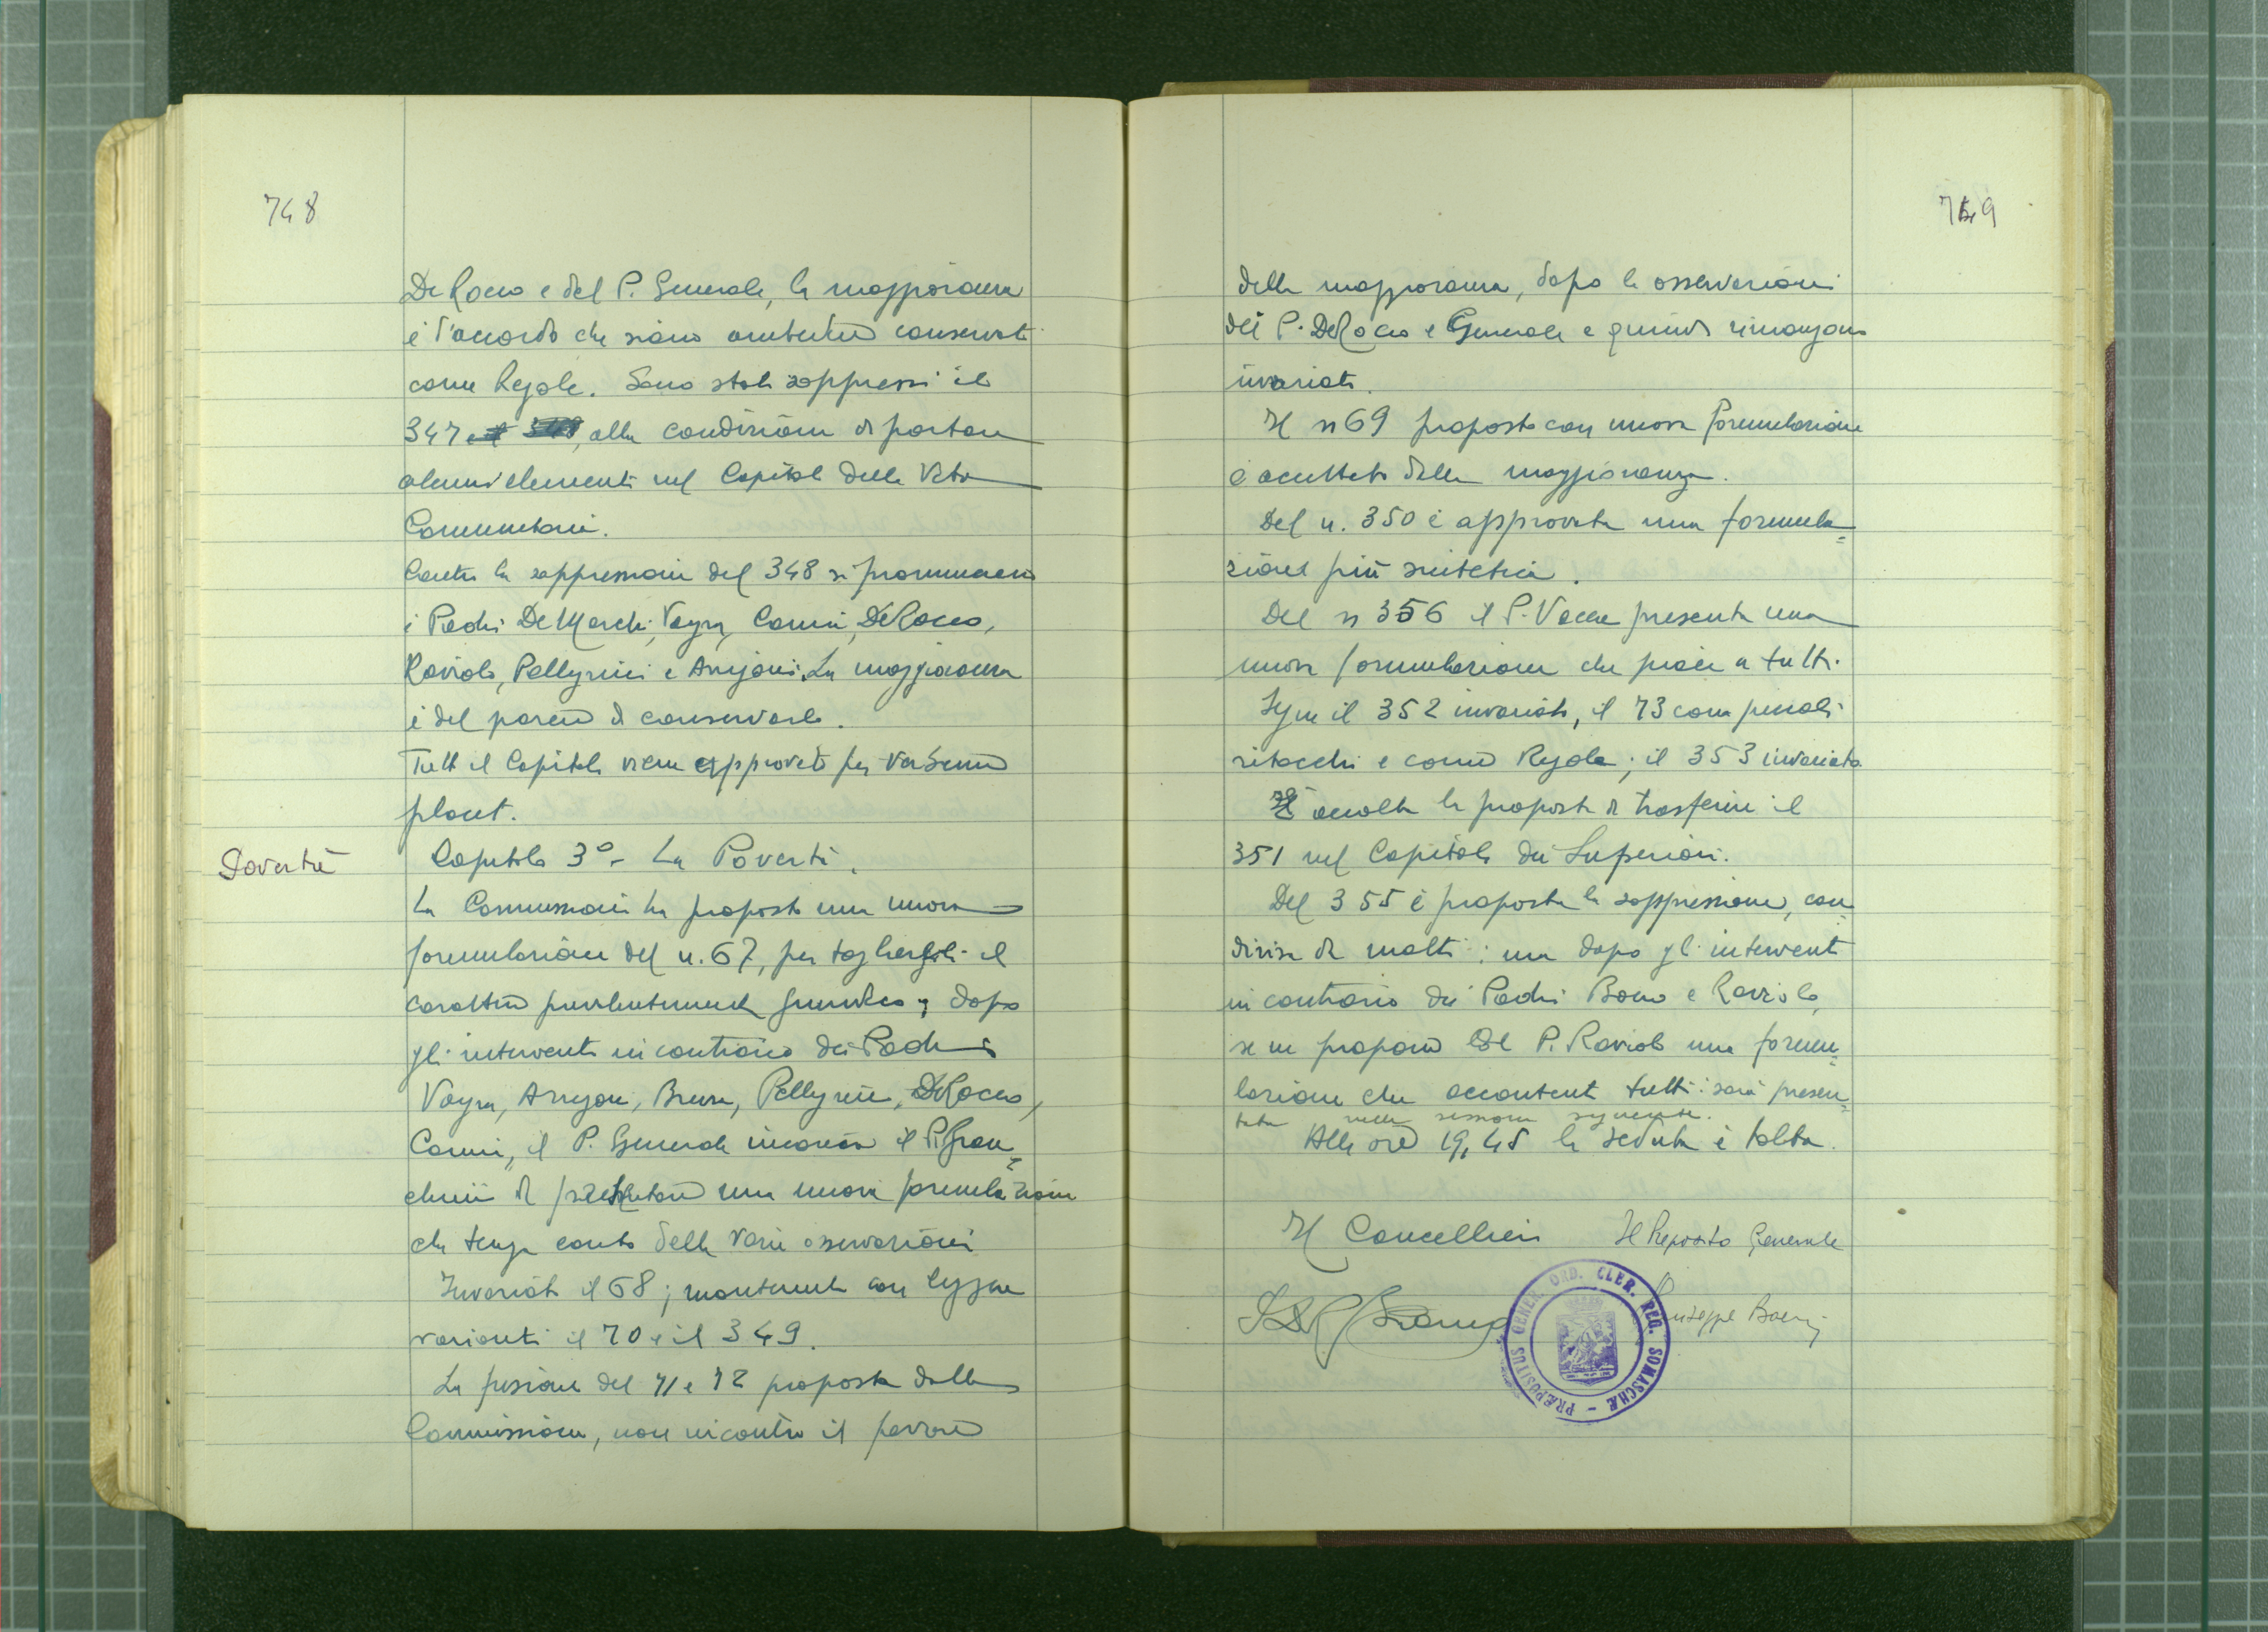 748
De Rocco e del P. Generale, la maggioranza
è d'accordo che siano ambedue conservati
come Regole. Sono stati soppressi il
347 alla condizione di portare
alcuni elementi nel Capitolo della Vita
Comunitaria.
Contro la soppressione del 348 si pronunciano
i Padri De Marchi, Vayra, Camia, DeRocco,
Raviolo, Pellegrini e Arrigoni. La maggioranza
è del parere di conservarlo.
Tutto il Capitolo viene approvato per
placet.
Povertà
Capitolo 3° - La Povertà.
La Commissione ha proposto una nuova
formulazione del n. 67, per togliergli il
carattere prevalentemente giuridico; dopo
gli interventi in contrario dei Padri
Vayra, Arrigoni, Brusa, Pellegrini, DeRocco,
il P. Generale incarica il P. Fran=
chini di presentare una nuova formulazione
che tenga conto delle varie osservazioni
Invariato il 68; mantenuti con leggere
varianti il 70 e il 349.
La fusione del 71 e 72 proposta dalla
Commissione, non incontra il favore
749
della maggioranza, dopo le osservazioni
dei P. DeRocco e Generale e quindi rimangono
invariati.
Il n 69 proposto con nuova formulazione
è accettato dalla maggioranza.
Del n. 350 è approvata una formula=
zione più sintetica.
Del n 356 il P. Vacca presenta una
nuova formulazione che piace a tutti.
Segue il 352 invariato, il 73 con piccoli
ritocchi e come Regola; il 353 invariato
È accolta la proposta di trasferire il
351 nel Capitolo dei Superiori.
Del 355 è proposta la soppressione, con=
divisa da molti; ma dopo gli interventi
in contrario dei Padri Boero e Raviolo,
se ne propone dal P. Raviolo una formu=
lazione che accontenta tutti: sarà presen=
tata nella sessione seguente.
Alle ore 19,45 la seduta è tolta.
Il Cancelliere Il Preposito Generale
Giuseppe Boeris
PRÆPOSITUS GENER. ORD. CLER. REG. SOMASCHÆ